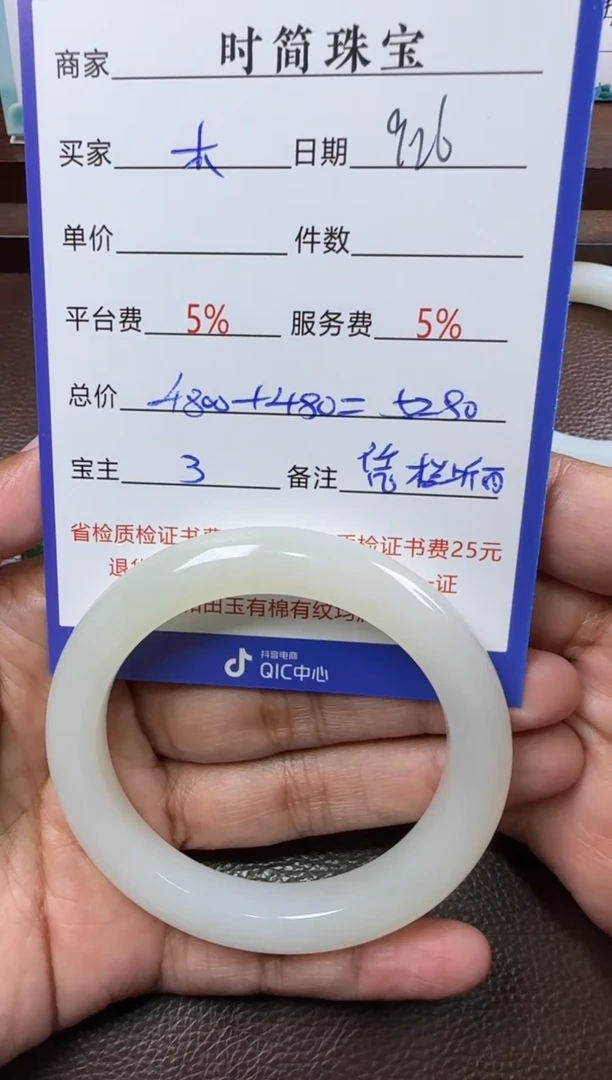 商家 时简珠宝
买家 本 日期 926
单价 件数
平台费 5% 服务费 5%
总价 4800+480=5280
宝主 3 备注
省检质检证书费 检证书费25元
退 一证
田玉有棉有纹
抖音电商
QIC中心